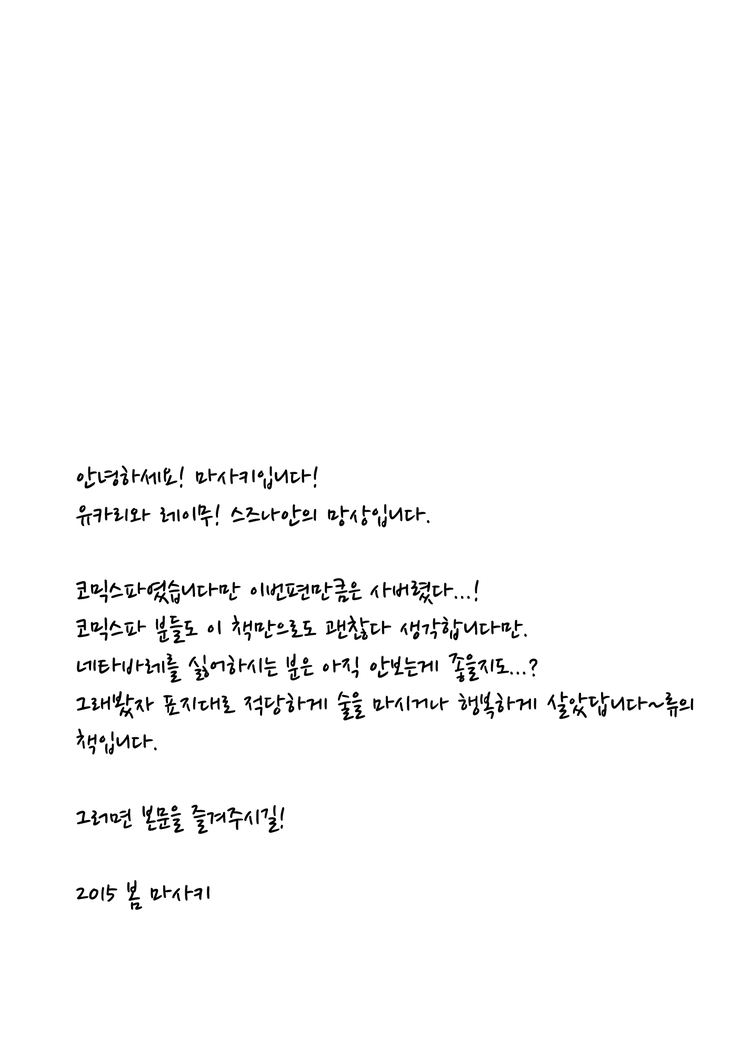 안녕하세요! 마사키입니다!
유카리와 레이무! 스즈나안의 망상입니다.
코믹스파였습니다만 이번편만큼은 사버렸다...!
코믹스파 분들도 이 책만으로도 괜찮다 생각합니다만.
네타바레를 싫어하시는 분은 아직 안보는게 좋을지도...?
그래봤자 표지대로 적당하게 술을 마시거나 행복하게 살았답니다~류의
책입니다.
그러면 본문을 즐겨주시길!
2015 봄 마사키